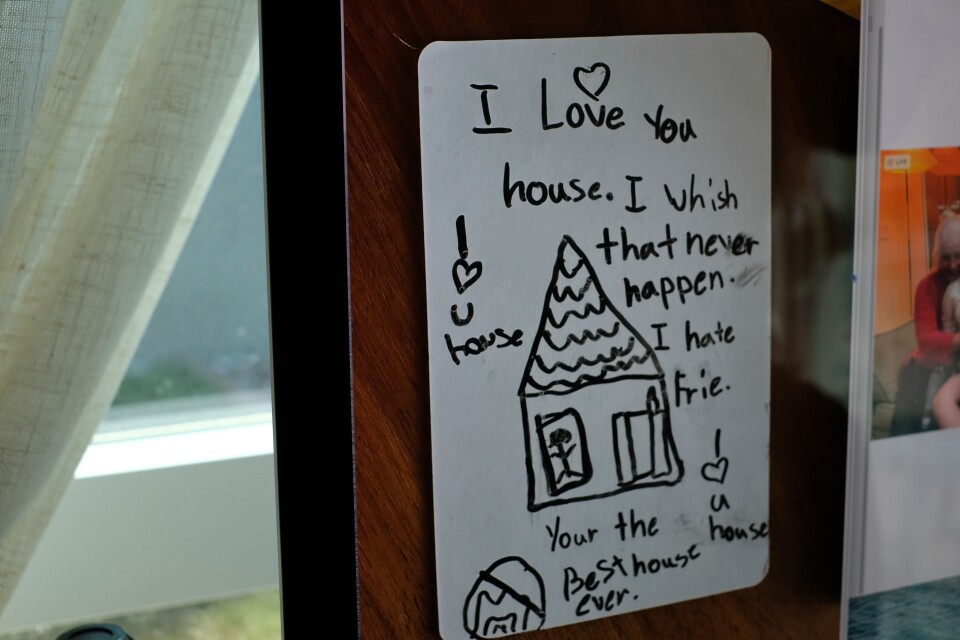 I Love You
house. I whish
that never
happen.
I hate
Frie.
I
u
house
I
u
house
Your the
Best house
ever.
LIVE